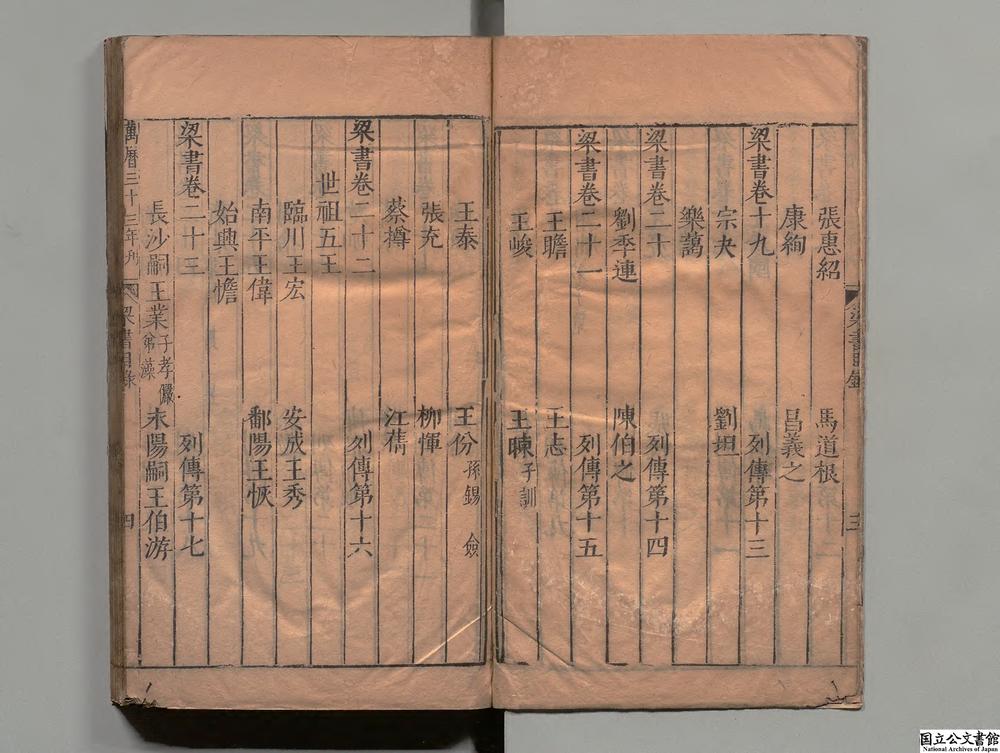 張惠紹 馬道根
康絢 昌義之
梁書卷十九 列傳第十三
宗夬 劉坦
樂藹
梁書卷二十 列傳第十四
劉季連 陳伯之
梁書卷二十一 列傳第十五
王瞻 王志
王峻 王暕 子訓
王泰 王份 孫錫 僉
張充 柳惲
蔡樽 江蒨
梁書卷二十二 列傳第十六
世祖五王
臨川王宏 安成王秀
南平王偉 鄱陽王恢
始興王憺
梁書卷二十三 列傳第十七
長沙嗣王業 子孝儼 弟藻 末陽嗣王伯游
萬曆三十三年刊 梁書目錄 四
国立公文書館
National Archives of Japan